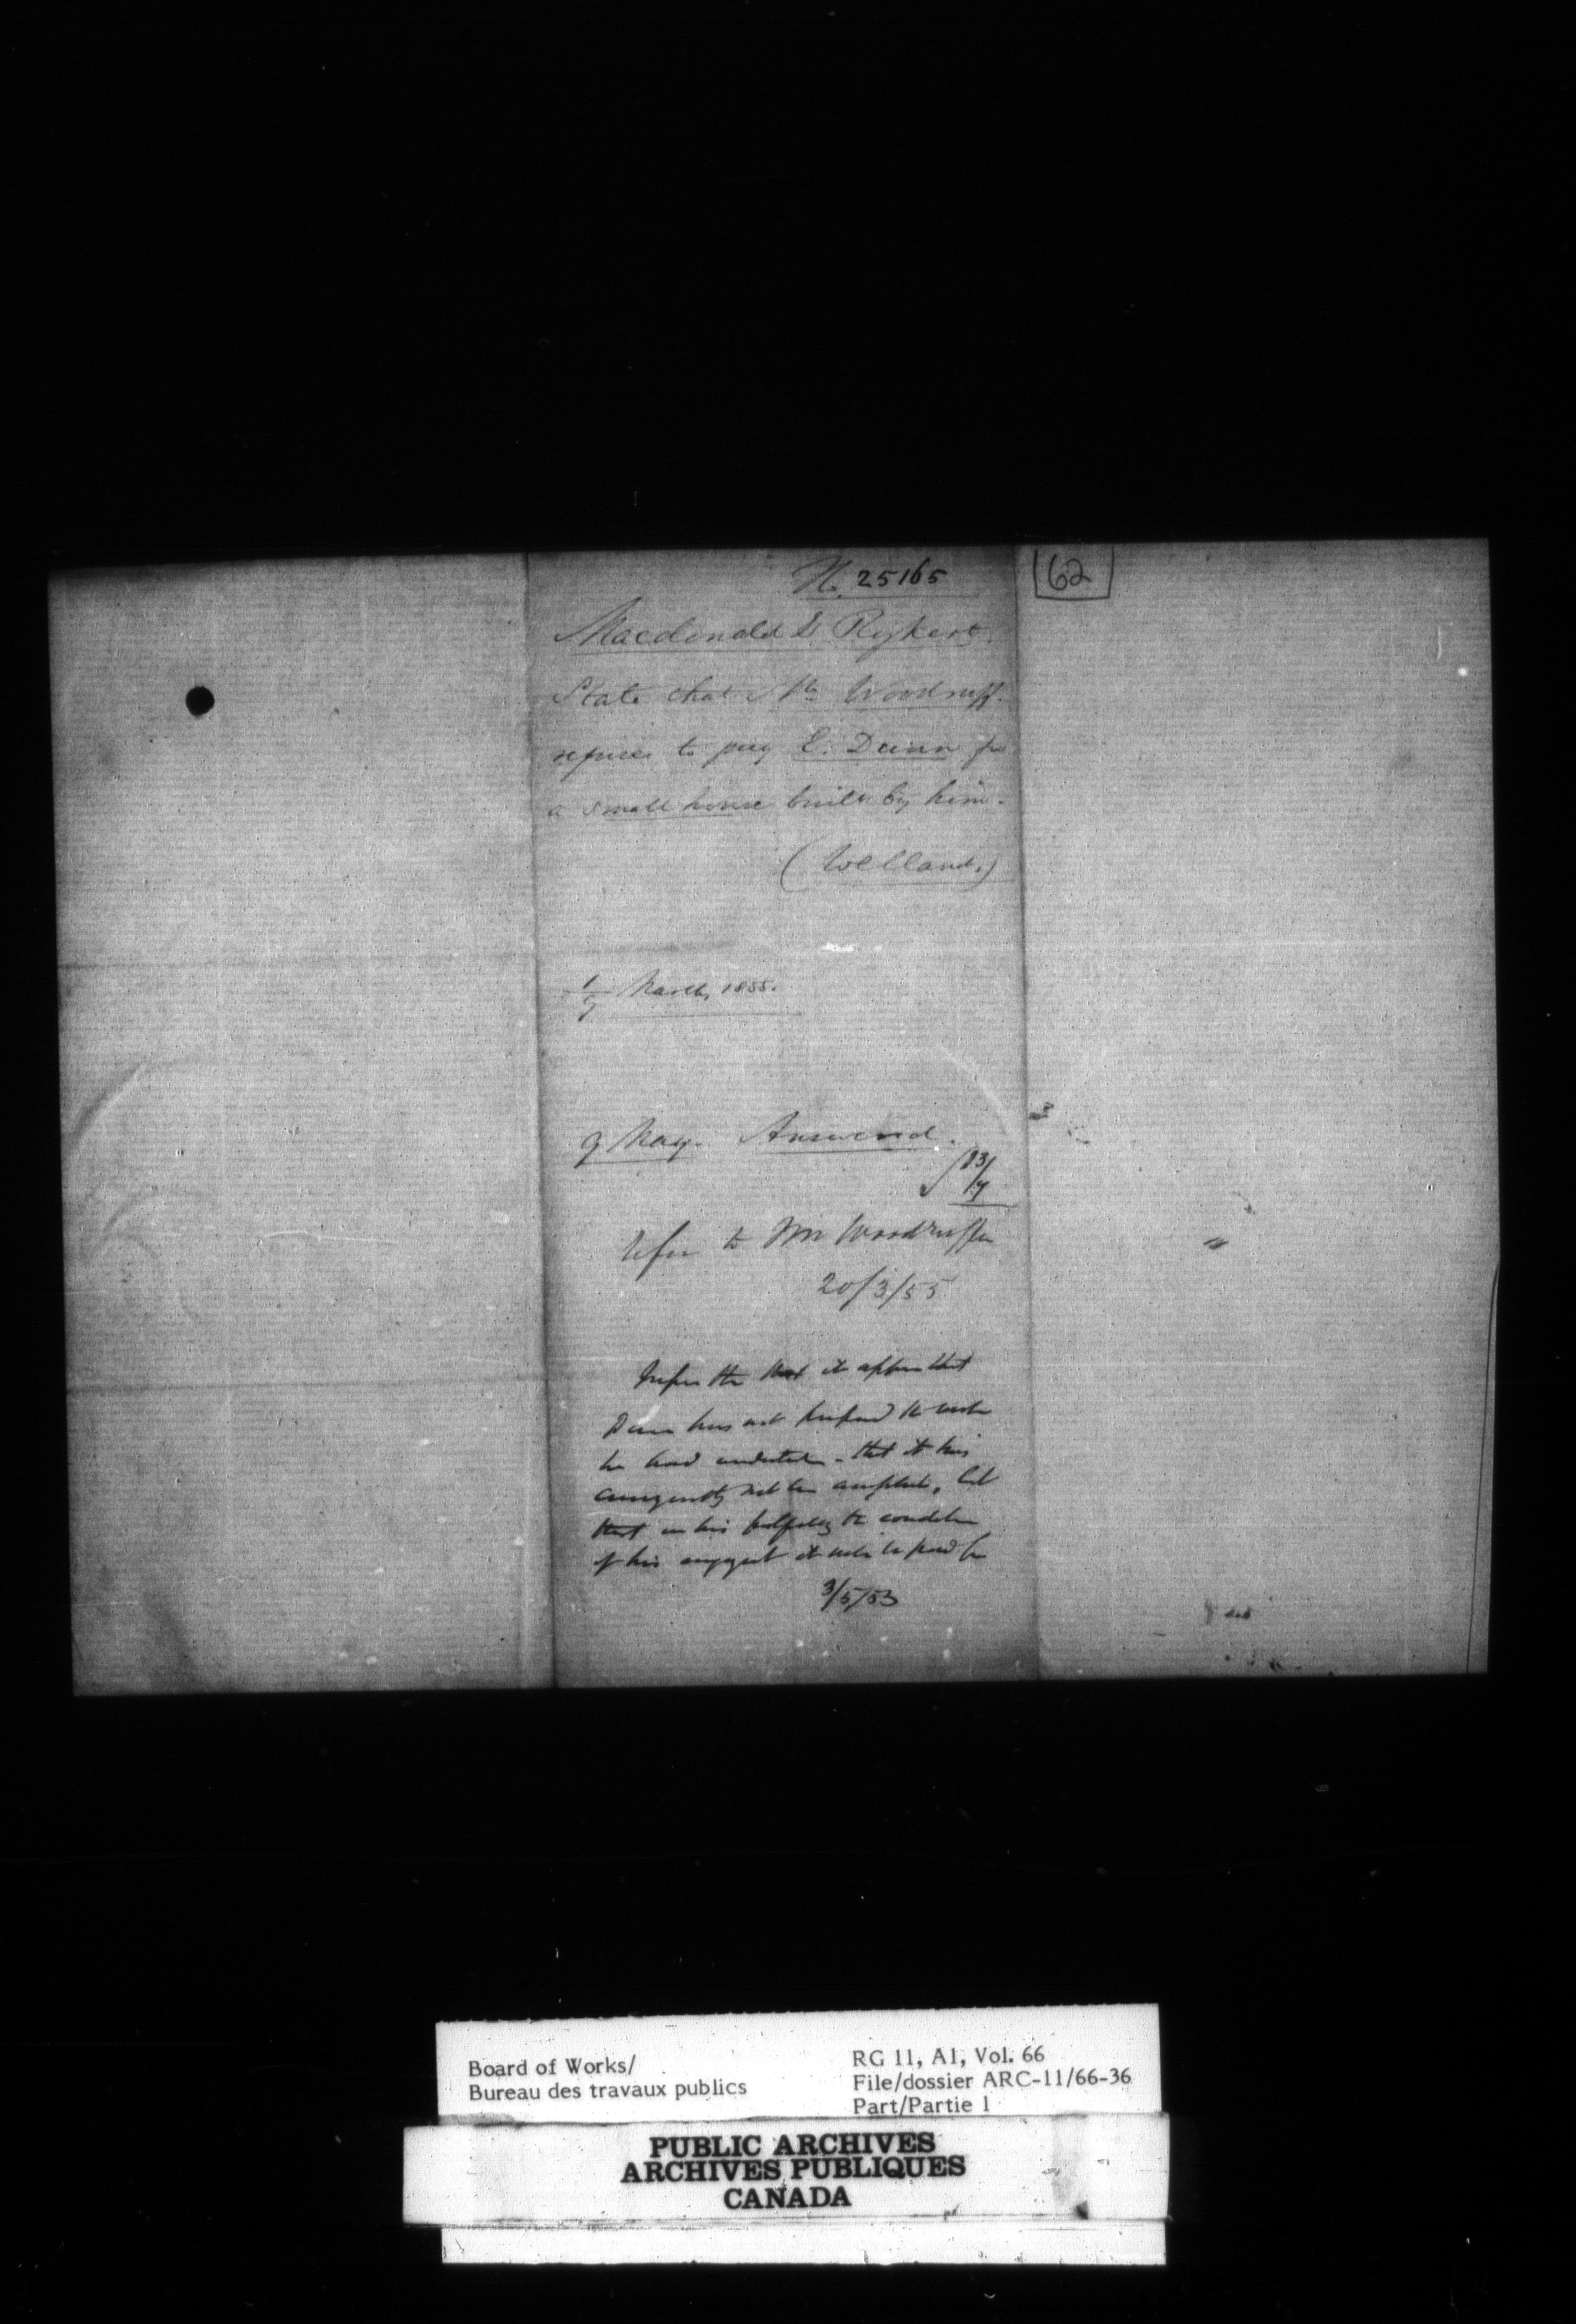 No. 25165
62
Macdonald & Rykert.
State that Mr. Woodruff
refuses to pay E. Dunn for
a small house built by him.
(Welland.)
1/9 March, 1855.
9 May. Answered.
13/4
Refer to Mr Woodruff
20/3/55
it appears that
Dunn has not the work
he had undertaken - that it has
consequently not been completed, but
that on his fulfilling the condition
of his it will be paid for
3/5/55
Board of Works/
Bureau des travaux publics
RG 11, A1, Vol. 66
File/dossier ARC-11/66-36
Part/Partie 1
PUBLIC ARCHIVES
ARCHIVES PUBLIQUES
CANADA